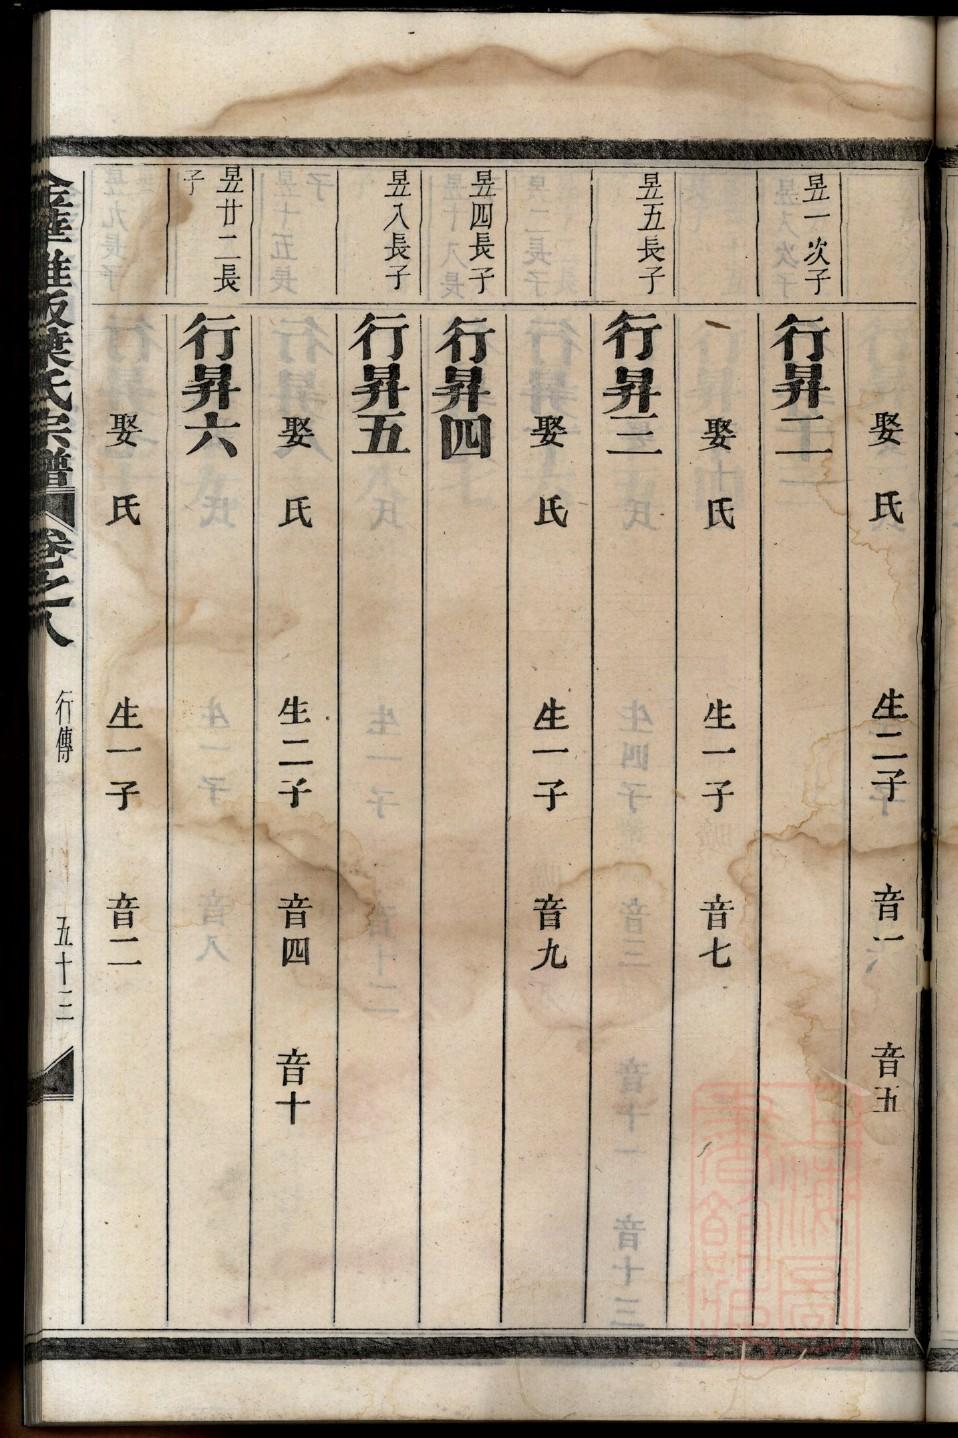 娶 氏 生二子 音一 音五
昱一次子
行昇二
娶 氏 生一子 音七
昱五長子
行昇三
娶 氏 生一子 音九
昱四長子
行昇四
昱八長子
行昇五
娶 氏 生二子 音四 音十
昱廿二長子
行昇六
娶 氏 生一子 音二
氏宗譜 卷之八 行傳 五十三